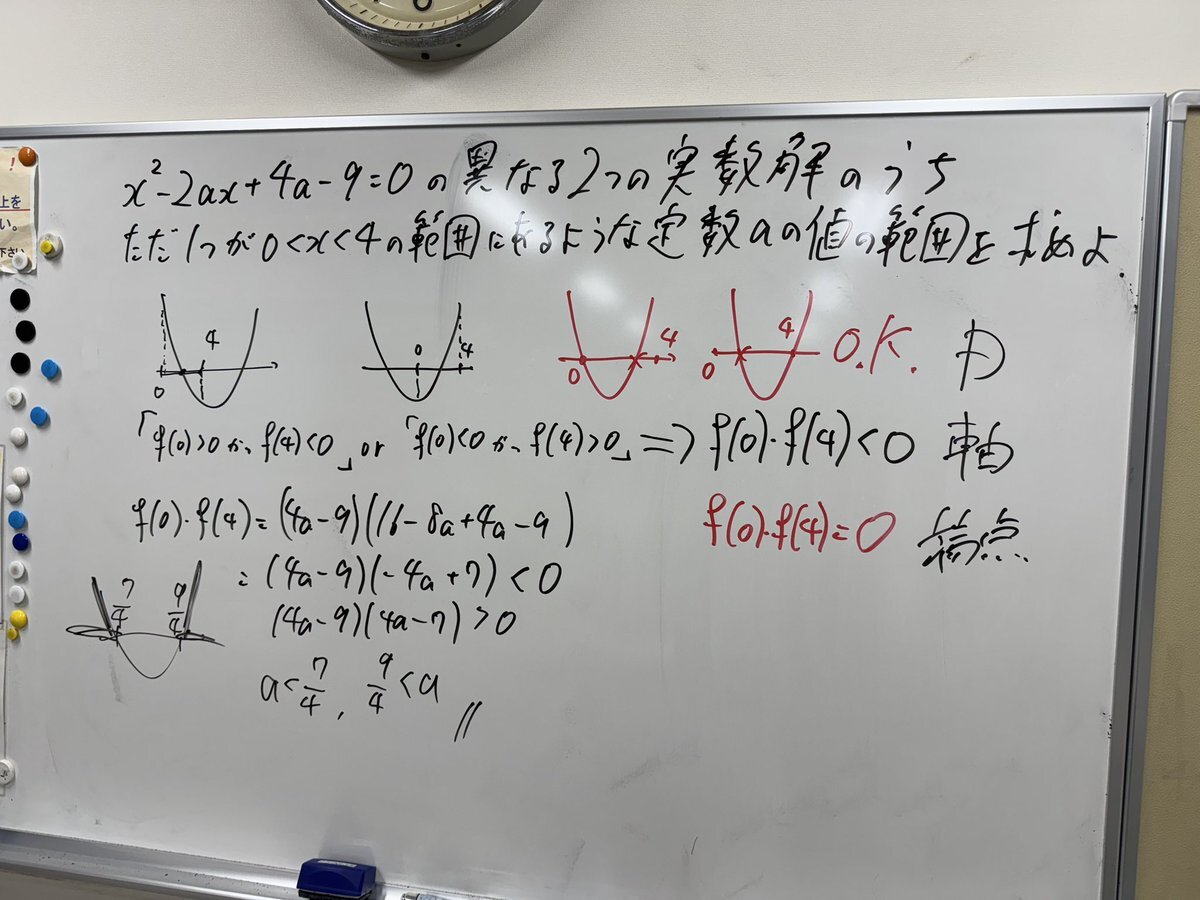 x²-2ax+4a-9=0の異なる2つの実数解のうち
ただ1つが0<x<4の範囲にあるような定数aの値の範囲を求めよ
0 4
0 4
0 4
0 4
O.K.
D
「f(0)>0かつf(4)<0」or「f(0)<0かつf(4)>0」⇒f(0)・f(4)<0
軸
f(0)・f(4)=(4a-9)(16-8a+4a-9)
f(0)・f(4)=0
端点
=(4a-9)(-4a+7)<0
(4a-9)(4a-7)>0
7/4 9/4
a<7/4, 9/4<a //
！
上を
い。
下さい